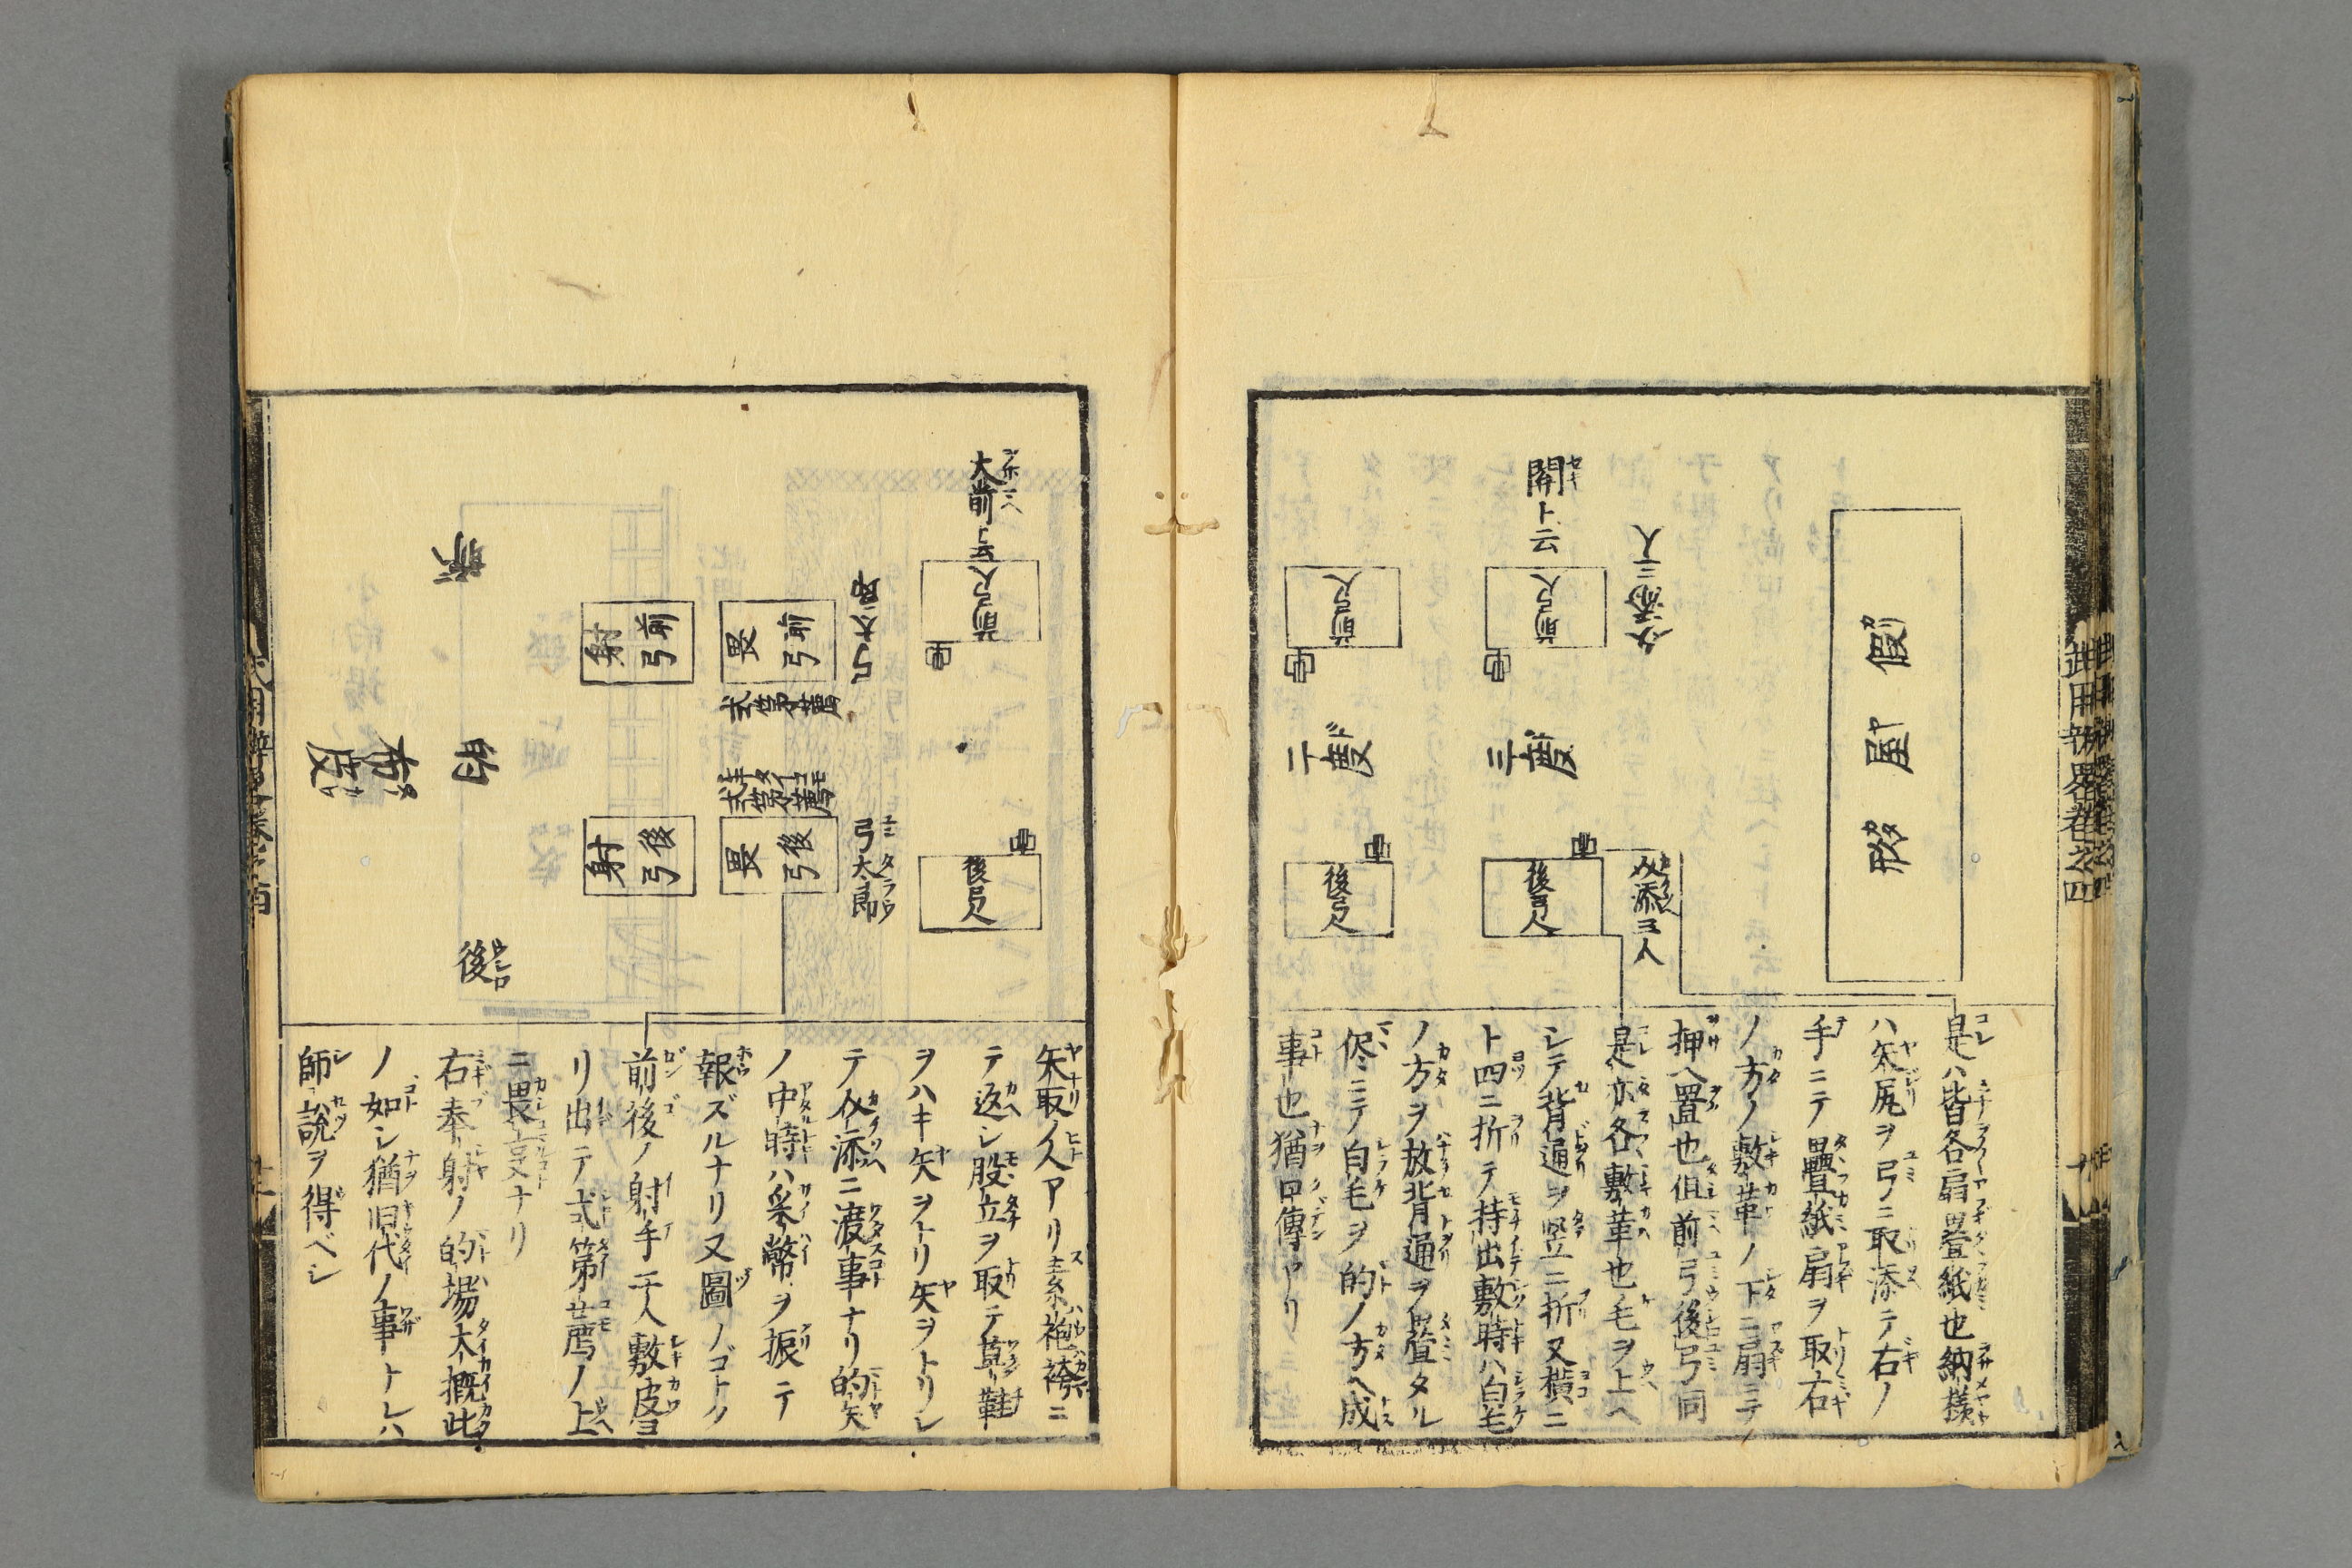 假屋形
介添三人
介添三人
開ト云
前弓人
後弓人
三度
前弓人
後弓人
二度
是ハ皆各扇畳紙也納様
ハ矢尻ヲ弓ニ取添テ右ノ
手ニテ疊紙扇ヲ取右
ノ方ノ敷革ノ下ニ扇ニテ
押ヘ置也但前弓後弓同
是亦各敷革也毛ヲ上ヘ
シテ背通ヲ竪ニ折又横ニ
ト四ニ折テ持出敷時ハ白毛
ノ方ヲ放背通ヲ畳タル
侭ニテ白毛ヲ的ノ方ヘ成
事也猶口傳アリ
武用辨畧巻之四
大前ト云
前弓人
後弓人
弓太郎
弓太郎
前弓畏
後弓畏
式第薦
式第薦
前弓射
後弓射
的
後
布皮
矢取ノ人アリ素袍袴ニ
テ返シ股立ヲ取テ草鞋
ヲハキ矢ヲトリ矢ヲトリシ
テ介添ニ渡事ナリ的矢
ノ中時ハ采幣ヲ振テ
報ズルナリ又圖ノゴトク
前後ノ射手二人敷皮ヨ
リ出テ式第薦ノ上
ニ畏ナリ
右奉射ノ的場大概此
ノ如シ猶旧代ノ事トシハ
師説ヲ得ベシ